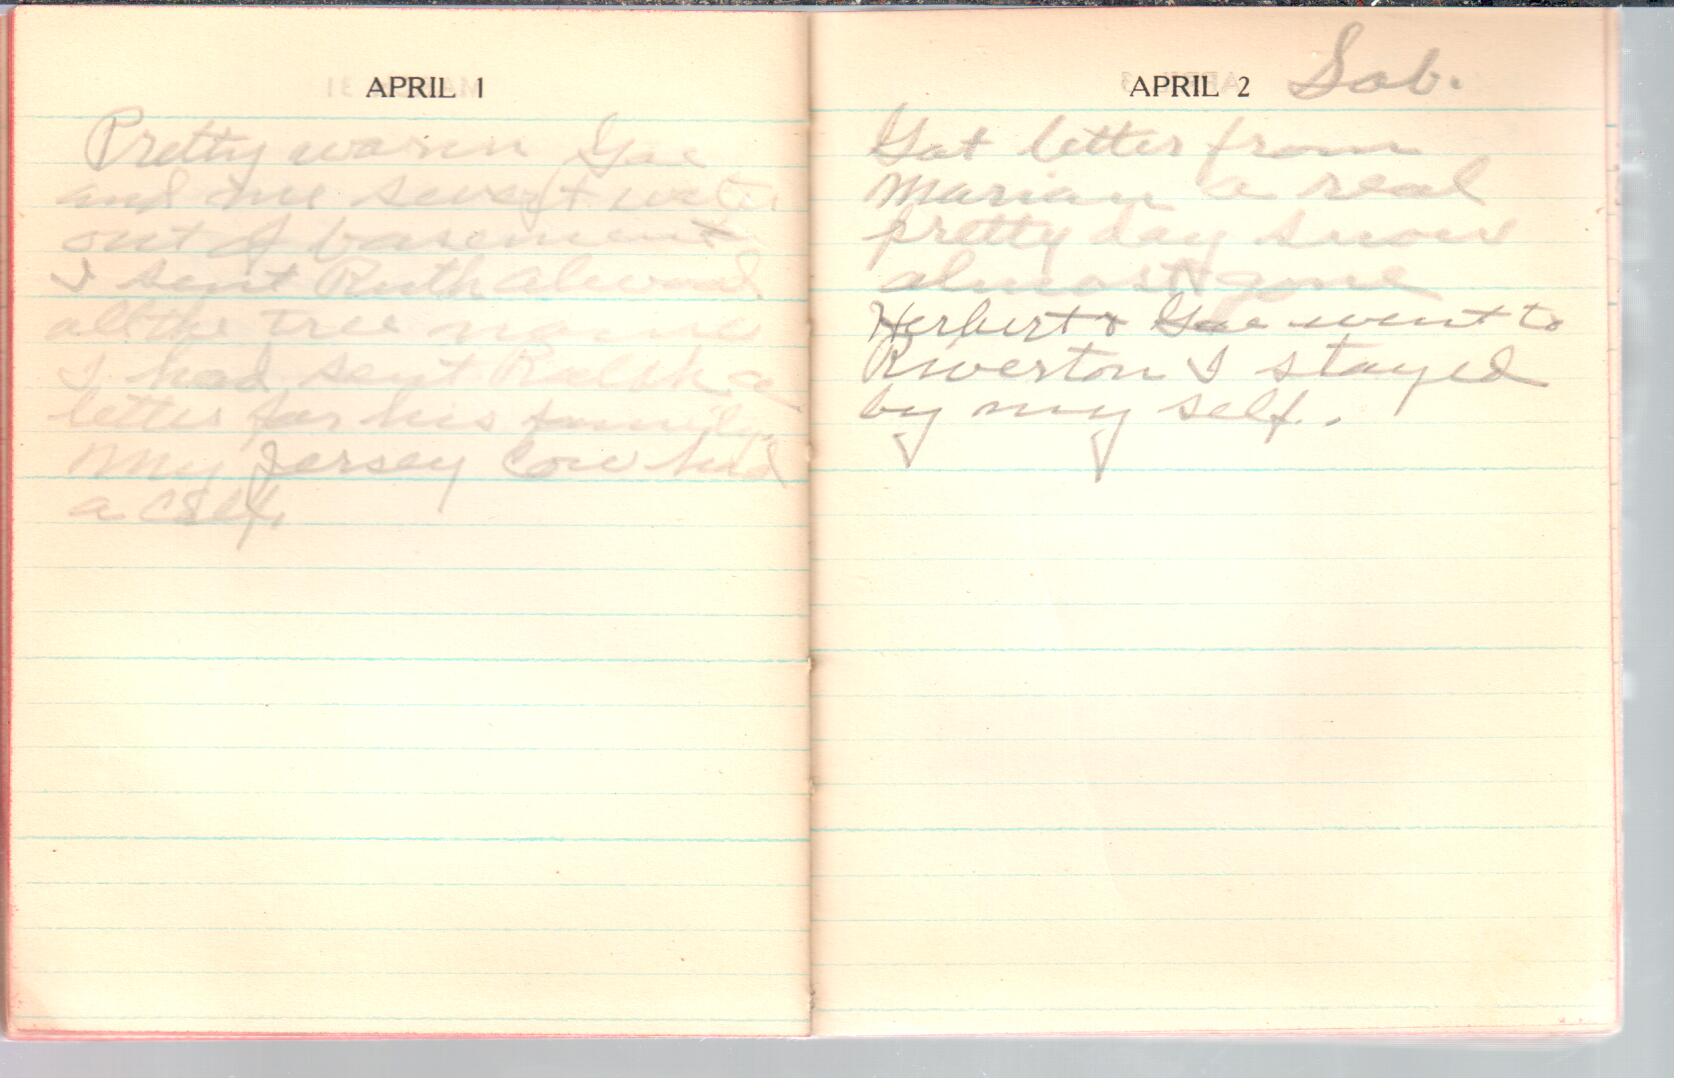 APRIL 1
Pretty warm Gae
and me swept water
out of basement
I sent Ruth
all the tree names
I had sent Ralph a
letter for his family
My Jersey Cow had
a calf.
APRIL 2 Sab.
Got letter from
Marian a real
pretty day snow
almost gone
Herbert & Gae went to
Riverton I stayed
by my self.